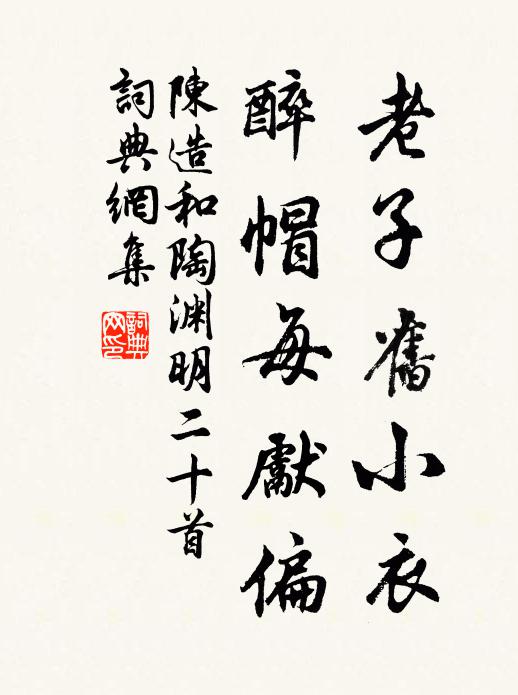 老子舊小衣
醉帽每獻偏
陳造和陶淵明二十首
詞典網集
詞典网印